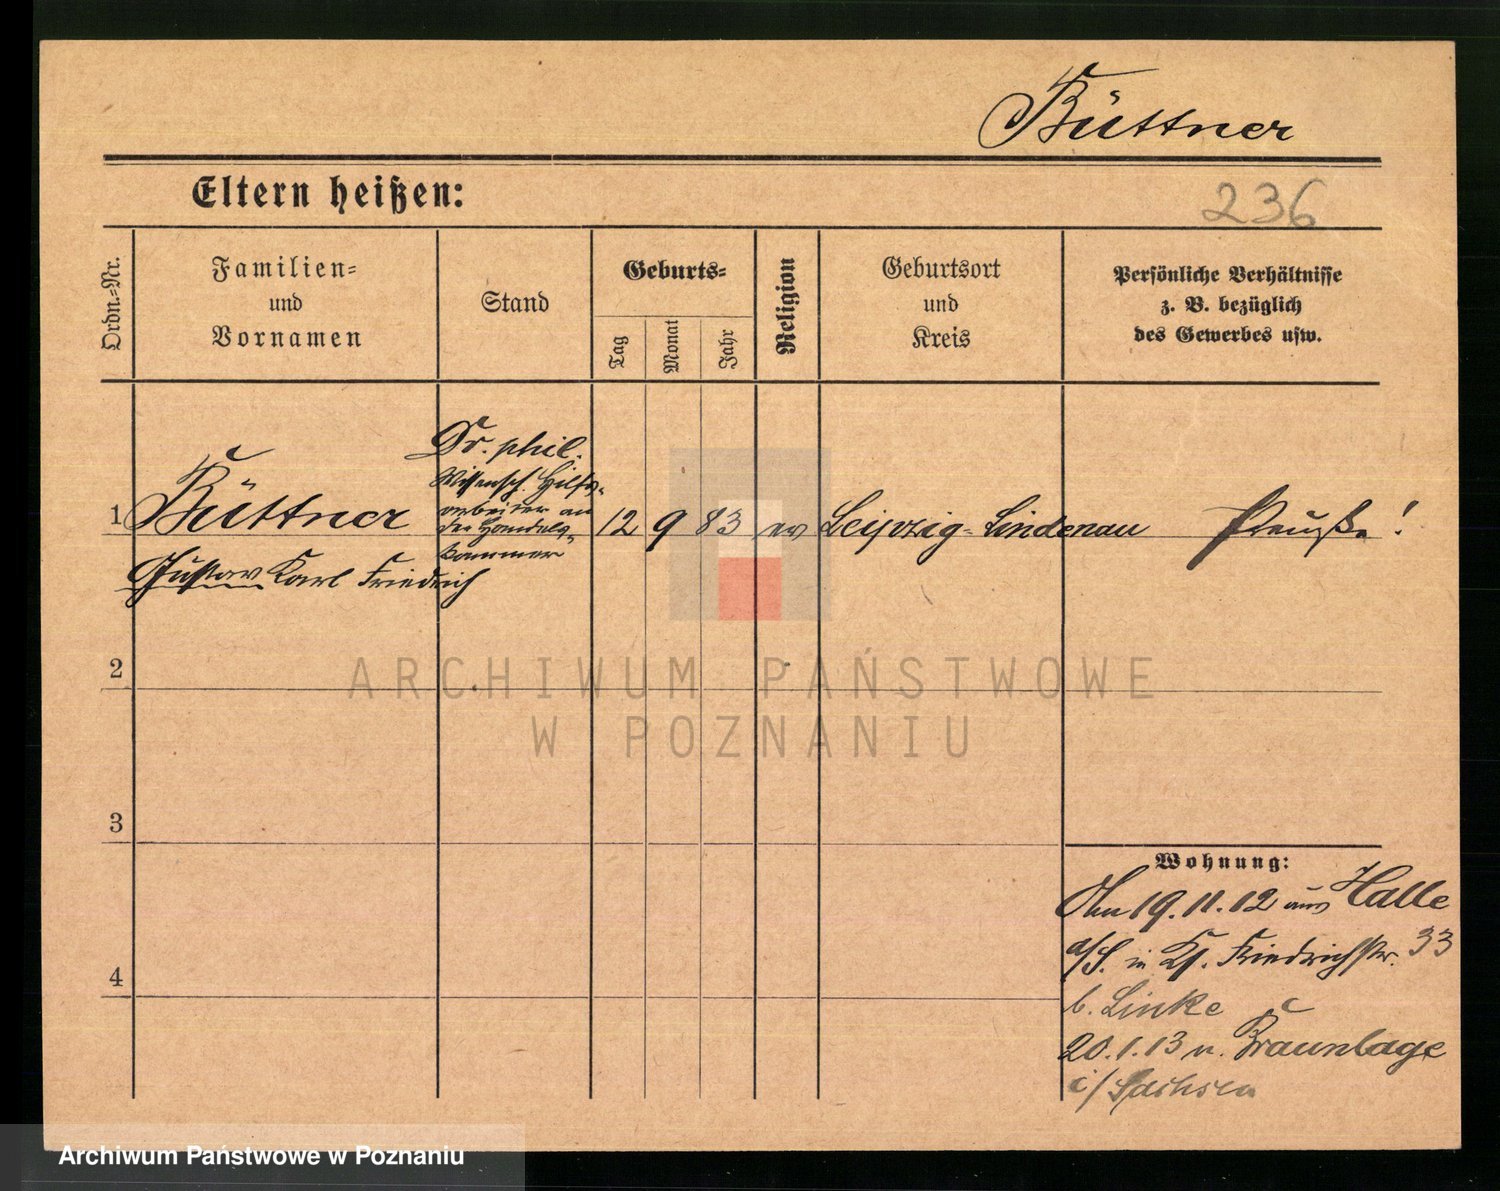 Büttner
Eltern heißen:
236
Ordn.-Nr.
Familien-
und
Vornamen
Stand
Geburts-
Tag
Monat
Jahr
Religion
Geburtsort
und
Kreis
Persönliche Verhältnisse
z. B. bezüglich
des Gewerbes usw.
1
Büttner
Gustav Karl Friedrich
Dr. phil.
Wissensch. Hilfs-
arbeiter an
der Handels-
kammer
12
9
83
ev
Leipzig-Lindenau
Preuße!
2
ARCHIWUM PAŃSTWOWE
W POZNANIU
3
4
Wohnung:
Am 19.11.12 aus Halle
a/S. in Friedrichstr. 33
b. Linke
20.1.13 n. Braunlage
i/Sachsen
Archiwum Państwowe w Poznaniu